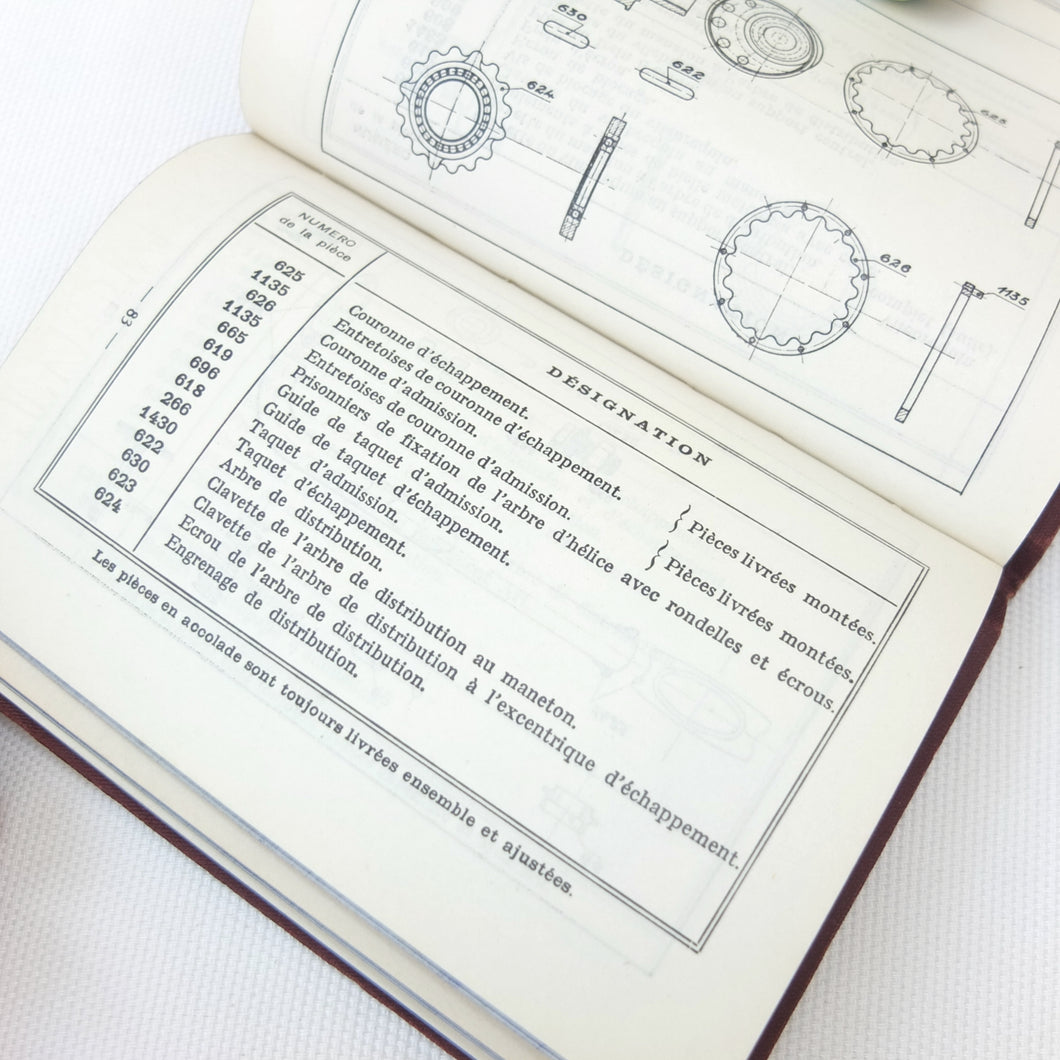 630
622
624
625
626
1135
NUMERO
de la pièce
DÉSIGNATION
625 Couronne d'échappement.
1135 Entretoises de couronne d'échappement.
Pièces livrées montées.
626 Couronne d'admission.
1135 Entretoises de couronne d'admission.
Pièces livrées montées.
665 Prisonniers de fixation de l'arbre d'hélice avec rondelles et écrous.
619 Guide de taquet d'admission.
696 Guide de taquet d'échappement.
618 Taquet d'admission.
266 Taquet d'échappement.
1430 Arbre de distribution.
622 Clavette de l'arbre de distribution au maneton.
630 Clavette de l'arbre de distribution à l'excentrique d'échappement.
623 Ecrou de l'arbre de distribution.
624 Engrenage de distribution.
Les pièces en accolade sont toujours livrées ensemble et ajustées.
— 83